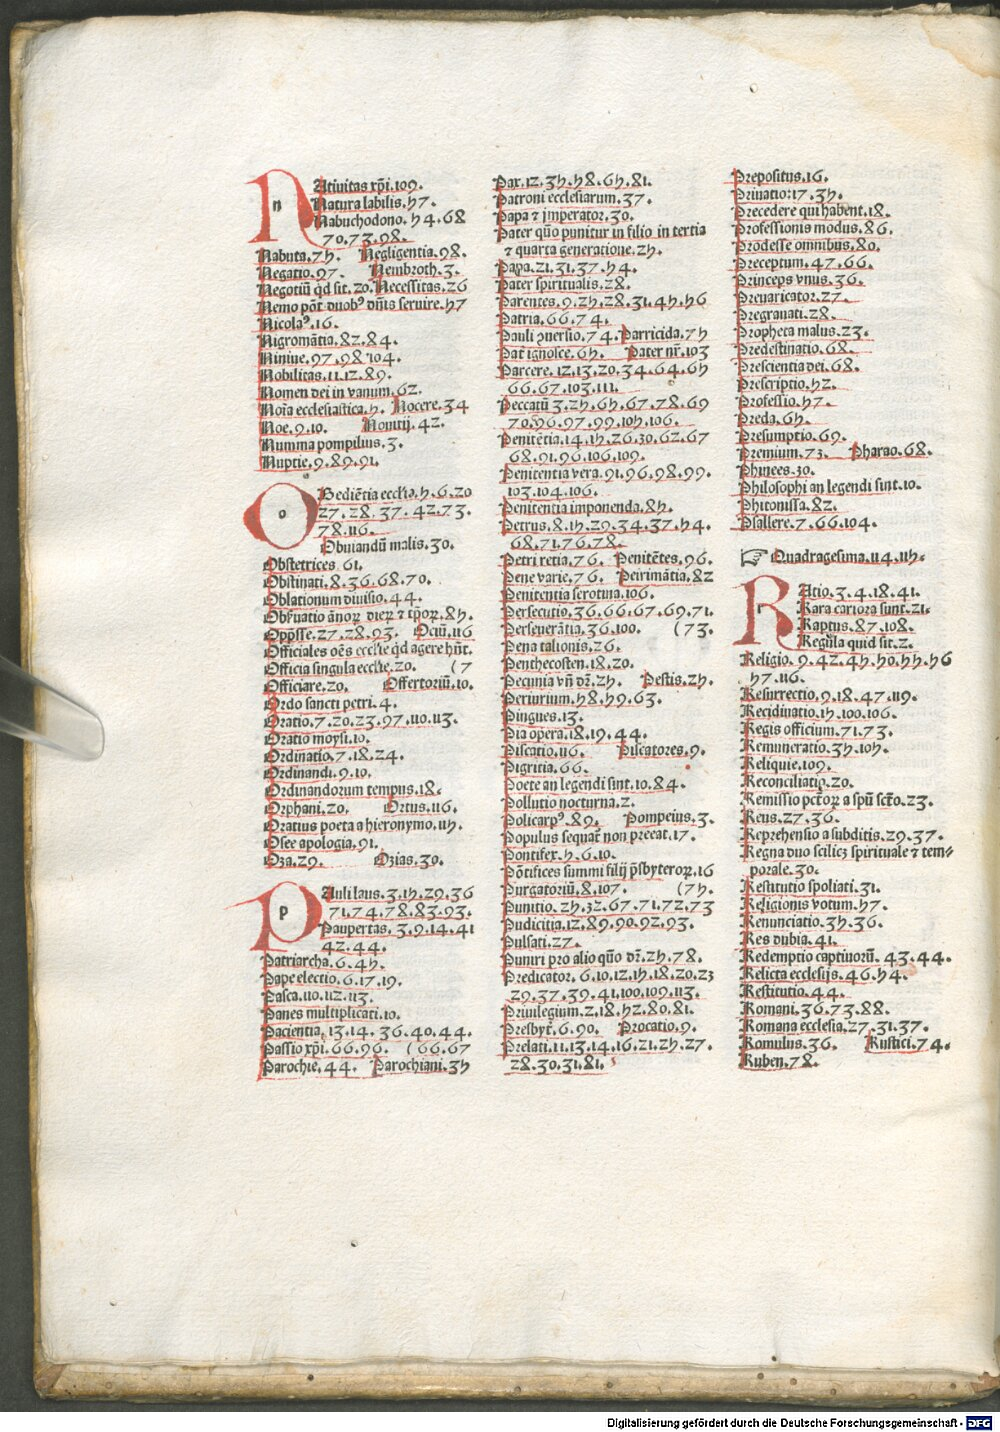 NAtiuitas xp̄i.109.
Natura labilis.57.
Nabuchodono.54.68
70.73.98.
Nabuta.75. Negligentia.98.
Negatio.97. Nembroth.3.
Negotiū qd̄ sit.20. Necessitas.26
Nemo pōt duobꝰ dn̄is seruire.57
Nicolaꝰ.16.
Nigromātia.82.84.
Niniue.97.98 104.
Nobilitas.11.12.89.
Nomen dei in vanum.62.
Nor̄a ecclesiastica.5. Nocere.34
Noe.9.10. Nouitij.42.
Numma pompilius.3.
Nuptie.9.89.91.
OBediētia eccl'ia.5.6.20
27.28.37.42.73.
78.116.
Obuiandū malis.30.
Obstetrices.61.
Obstinati.8.36.68.70.
Oblationum diuisio.44.
Obseruatio ānoꝝ dieꝝ ⁊ tp̄oꝝ.85.
Opp̄sse.27.28.93. Ociū.116
Officiales oēs eccl'ie qd̄ agere hn̄t.
Officia singula eccl'ie.20. (7
Officiare.20. Offertoriū.10.
Ordo sancti petri.4.
Oratio.7.20.23.97.110.113.
Oratio moysi.10.
Ordinatio.7.18.24.
Ordinandi.9.10.
Ordinandorum tempus.18.
Orphani.20. Ortus.116.
Oratius poeta a hieronymo.115.
Osee apologia.91.
Oza.29. Ozias.30.
PAuli laus.3.15.29.36
71.74.78.83.93.
Paupertas.3.9.14.41
42.44.
Patriarcha.6.45.
Pape electio.6.17.19.
Pasca.110.112.113.
Panes multiplicati.10.
Pacientia.13.14.36.40.44.
Passio xp̄i.66.96. (66.67
Parochie.44. Parochiani.35
Pax.12.35.58.65.81.
Patroni ecclesiarum.37.
Papa ⁊ imperator.30.
Pater quō punitur in filio in tertia
⁊ quarta generatione.25.
Papa.21.31.37.54.
Pater spiritualis.28.
Parentes.9.25.28.31.45.56
Patria.66.74.
Pauli ꝯuersio.74. Parricida.75
Pat̄ ignosce.65. Pater nr̄.103
Parcere.12.13.20.34.64.65
66.67.103.111.
Peccatū.3.25.65.67.78.69
70.96.97.99.105.106.
Penitētia.14.15.26.30.62.67
68.91.96.106.109.
Penitentia vera.91.96.98.99.
103.104.106.
Penitentia imponenda.85.
Petrus.8.15.29.34.37.54.
68.71.76.78.
Petri retia.76. Penitētes.96.
Pene varie.76. Peirimātia.82
Penitentia serotina.106.
Persecutio.36.66.67.69.71.
Perseuerātia.36.100. (73.
Pena talionis.26.
Penthecosten.18.20.
Pecunia vn̄ dr̄.25. Pestis.25.
Periurium.58.59.63.
Pingues.13.
Pia opera.18.19.44.
Piscatio.116. Piscatores.9.
Pigritia.66.
Poete an legendi sint.10.84.
Pollutio nocturna.2.
Policarpꝰ.89. Pompeius.3.
Populus sequat̄ non preeat.17.
Pontifex.5.6.10.
Pōtifices summi filij p̄sbyteroꝝ.16
Purgatoriū.8.107. (75.
Punitio.25.32.67.71.72.73
Pudicitia.12.89.90.92.93.
Pulsati.27.
Puniri pro alio quō dr̄.25.78.
Predicator.6.10.12.15.18.20.23
29.37.39.41.100.109.113.
Priuilegium.2.18.52.80.81.
Presbyt̄.6.90. Procatio.9.
Prelati.11.13.14.16.21.25.27.
28.30.31.81.
Prepositus.16.
Priuatio.17.35.
Precedere qui habent.18.
Professionis modus.86.
Prodesse omnibus.80.
Preceptum.47.66.
Princeps vnus.36.
Preuaricator.27.
Pregrauati.28.
Propheta malus.23.
Predestinatio.68.
Prescientia dei.68.
Prescriptio.52.
Professio.57.
Preda.65.
Presumptio.69.
Premium.73. Pharao.68.
Phinees.30.
Philosophi an legendi sint.10.
Phitonissa.82.
Psallere.7.66.104.
☞ Quadragesima.114.115.
RAtio.3.4.18.41.
Rara cariora sunt.21.
Raptus.87.108.
Regula quid sit.2.
Religio.9.42.45.50.55.56
57.116.
Resurrectio.9.18.47.119.
Recidiuatio.15.100.106.
Regis officium.71.73.
Remuneratio.35.105.
Reliquie.109.
Reconciliatio.20.
Remissio pctōꝝ a spū scto.23.
Reus.27.36.
Reprehensio a subditis.29.37.
Regna duo scilicz spirituale ⁊ tem-
porale.30.
Restitutio spoliati.31.
Religionis votum.57.
Renunciatio.35.36.
Res dubia.41.
Redemptio captiuorū.43.44.
Relicta ecclesijs.46.54.
Restitutio.44.
Romani.36.73.88.
Romana ecclesia.27.31.37.
Romulus.36. Rustici.74.
Ruben.78.
Digitalisierung gefördert durch die Deutsche Forschungsgemeinschaft - DFG